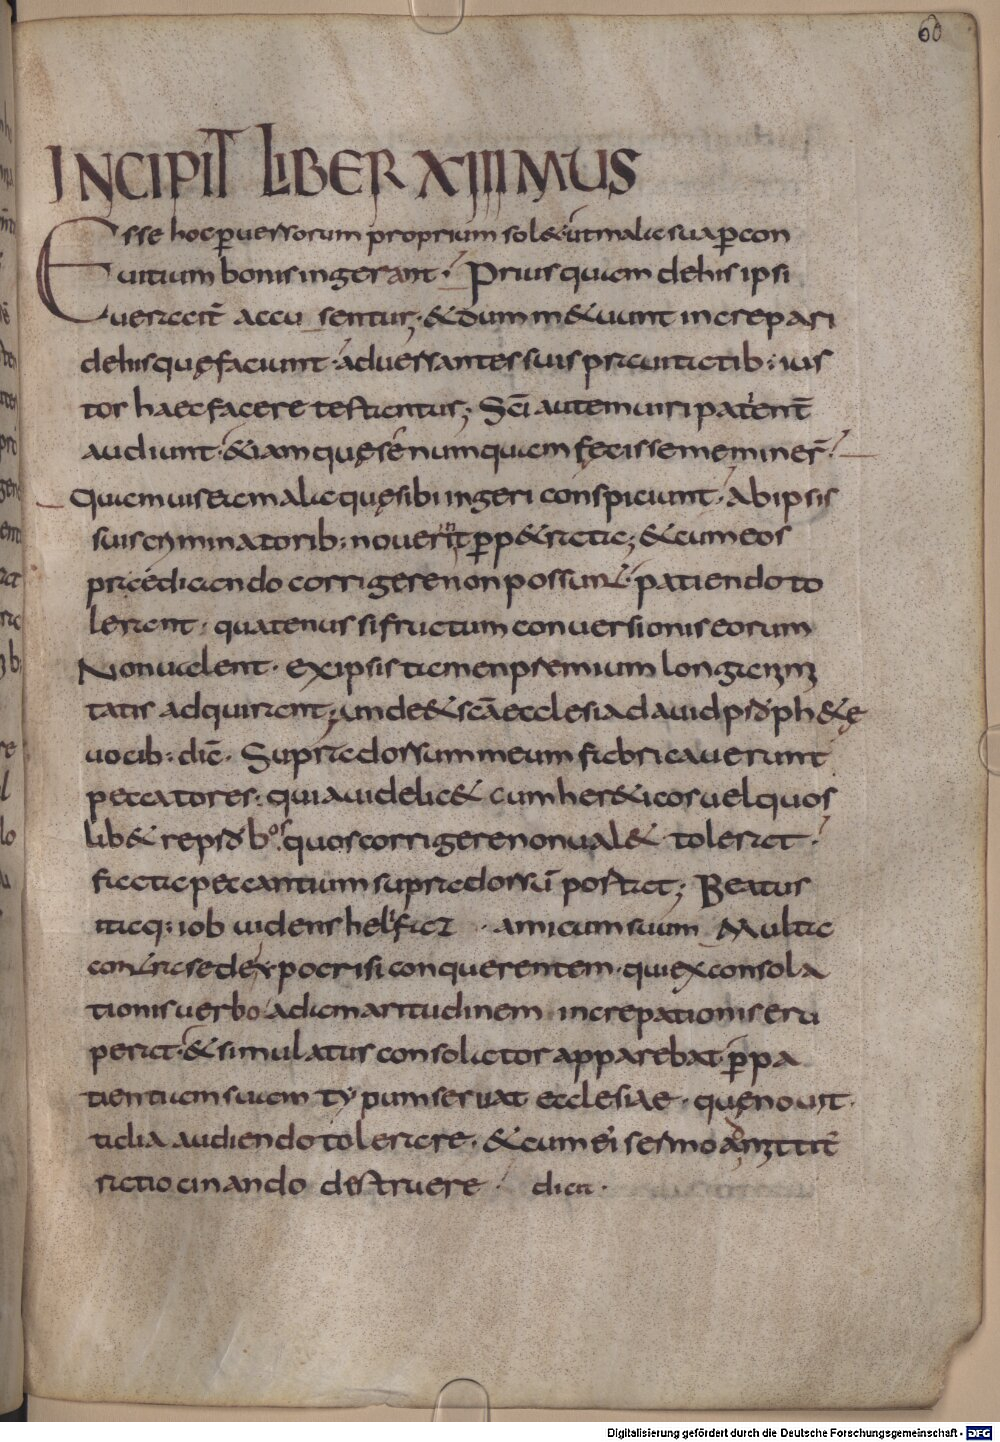 60
INCIPIT LIBER XIIIMUS
Esse hoc ꝑuersorum proprium sol& · ut mala sua ꝑ con
uitium bonis ingerant · Prius quam de his ipsi
ueraciť accusentur · & dum m&uunt increpari
de his quę faciunt · aduersantes suis prauitatib: ius
tor haec facere testantur; Sc̄i autem uiri patent̄
audiunt · &iam quę se numquam fecisse meminer̄ ·
Quam uis ea mala quę sibi ingeri conspiciunt · ab ipsis
suis criminatorib: nouerint ꝑp&rata; & cum eos
praedicando corrigere non possunt · patiendo to
lerant · quatenus si fructum conuersionis eorum
Non ualent · ex ipsis tamen premium longanimi
tatis adquirant; unde & sc̄a ecclesia dauid psal ph&ę
uocib: dic̄ · Supra dorsum meum fabricauerunt
peccatores · quia uidelic& cum her&icos uel quos
lib& reprobos quos corrigere non ual& tolerat ·
facta peccantium supra dorsū portat; Beatus
itaq: iob uidens helifaz · amicum suum Multa
contra se de ypocrisi conquerentem · qui ex consola
tionis uerbo ad amaritudinem increpationis eru
perat · & simulatus consolator apparebat · ꝑ pa
tientiam suam typum seruat ecclesiae · quę nouit ·
talia audiendo tolerare · & cum ei sermo admittit̄
ratiocinando destruere · dicit ·
Digitalisierung gefördert durch die Deutsche Forschungsgemeinschaft - DFG